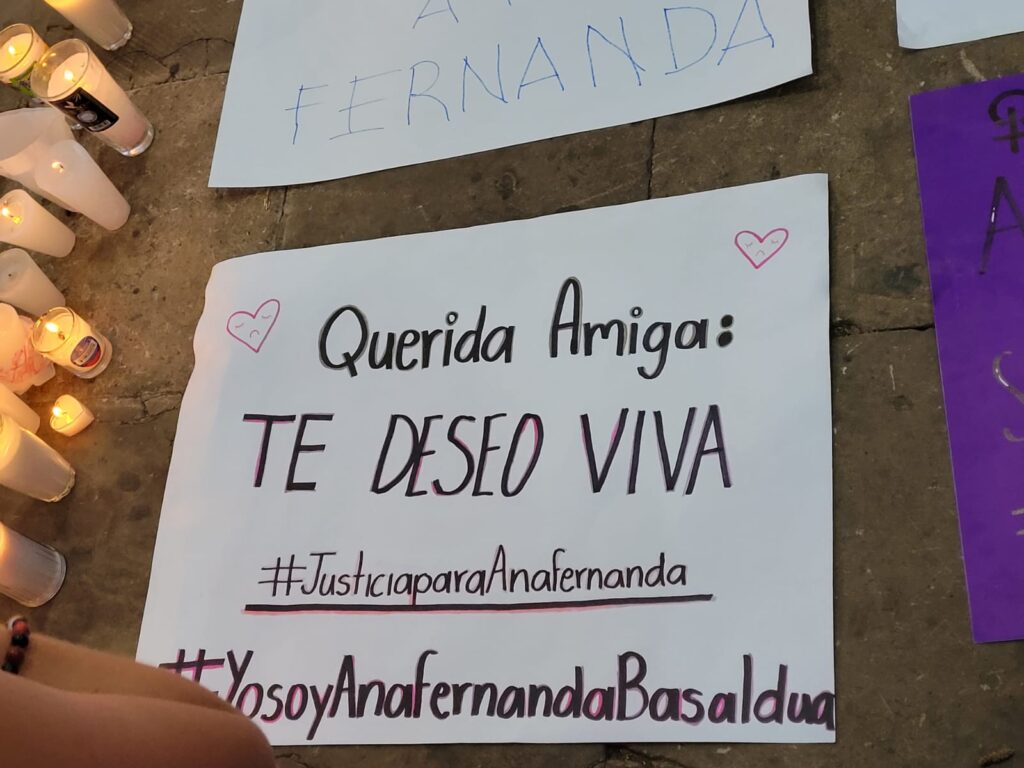 A
FERNANDA
Querida Amiga:
TE DESEO VIVA
#JusticiaparaAnafernanda
#YosoyAnafernandaBasaldua
A
S